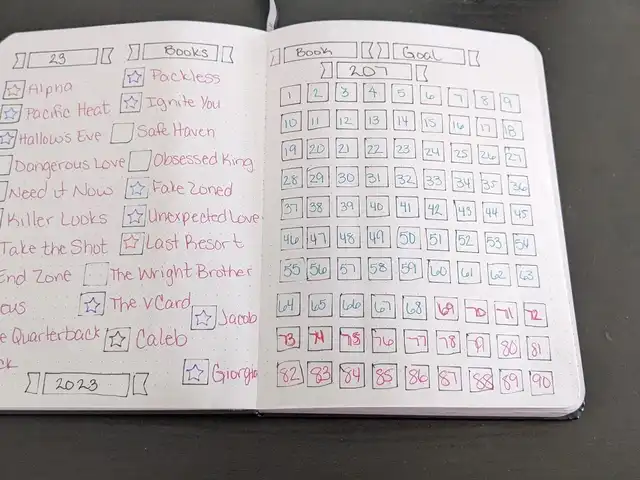 23 Books
Alpha
Pacific Heat
Hallow's Eve
Dangerous Love
Need it Now
Killer Looks
Take the Shot
End Zone
Quarterback
2023
Packless
Ignite You
Safe Haven
Obsessed King
Fake Zoned
Unexpected Love
Last Resort
The Wright Brother
The V Card
Jacob
Caleb
Giorgio
Book Goal
207
1 2 3 4 5 6 7 8 9
10 11 12 13 14 15 16 17 18
19 20 21 22 23 24 25 26 27
28 29 30 31 32 33 34 35 36
37 38 39 40 41 42 43 44 45
46 47 48 49 50 51 52 53 54
55 56 57 58 59 60 61 62 63
64 65 66 67 68 69 70 71 72
73 74 75 76 77 78 79 80 81
82 83 84 85 86 87 88 89 90